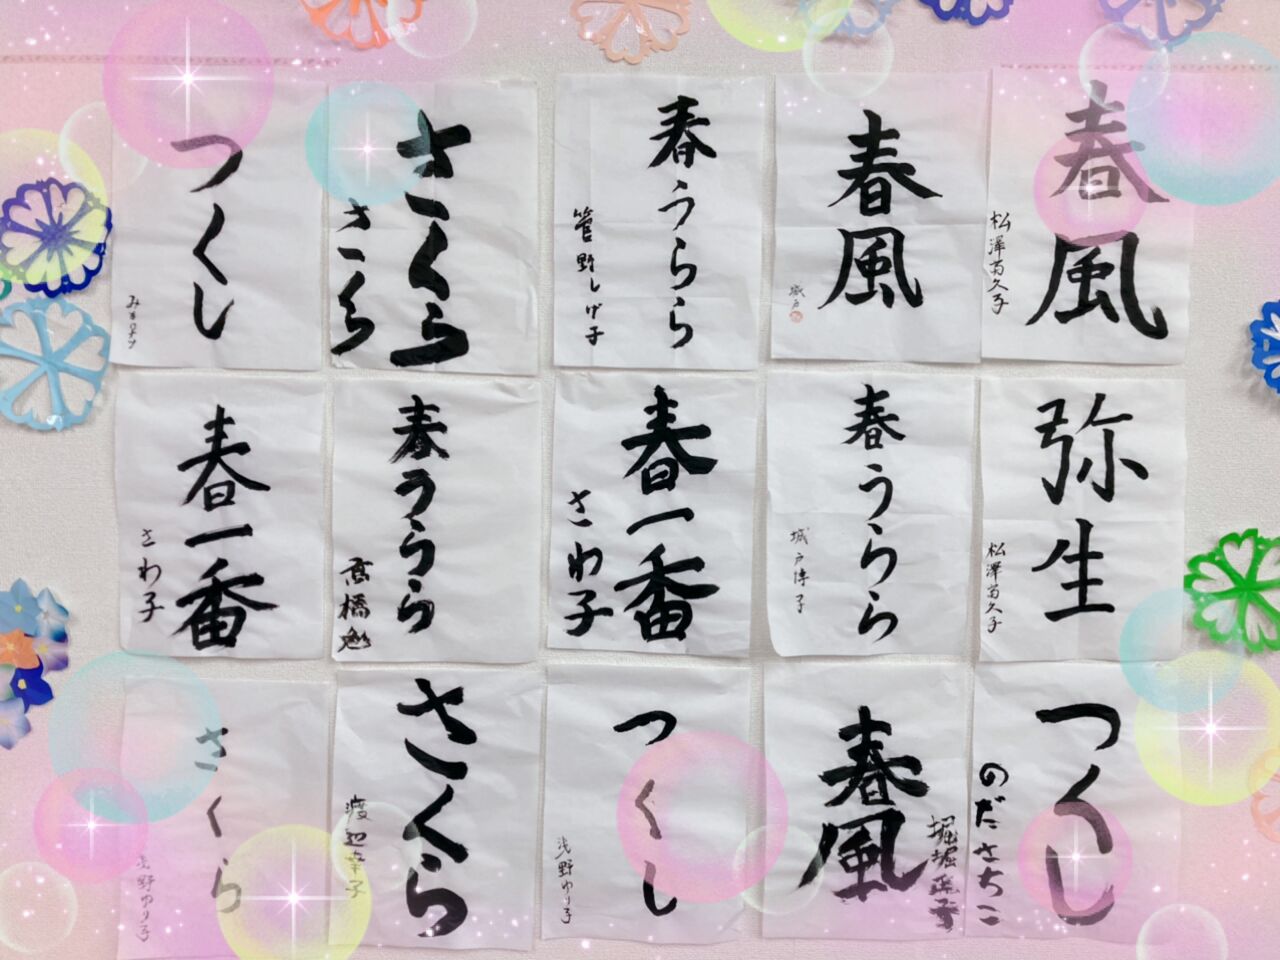 つくし
さくら
さくら
春うらら
菅野しげ子
春風
城戸
春風
松澤富久子
春一番
さわ子
春うらら
髙橋勉
春一番
さわ子
春うらら
城戸博子
弥生
松澤富久子
さくら
浅野ゆり子
さくら
渡辺幸子
つくし
浅野ゆり子
春風
つくし
のださちこ